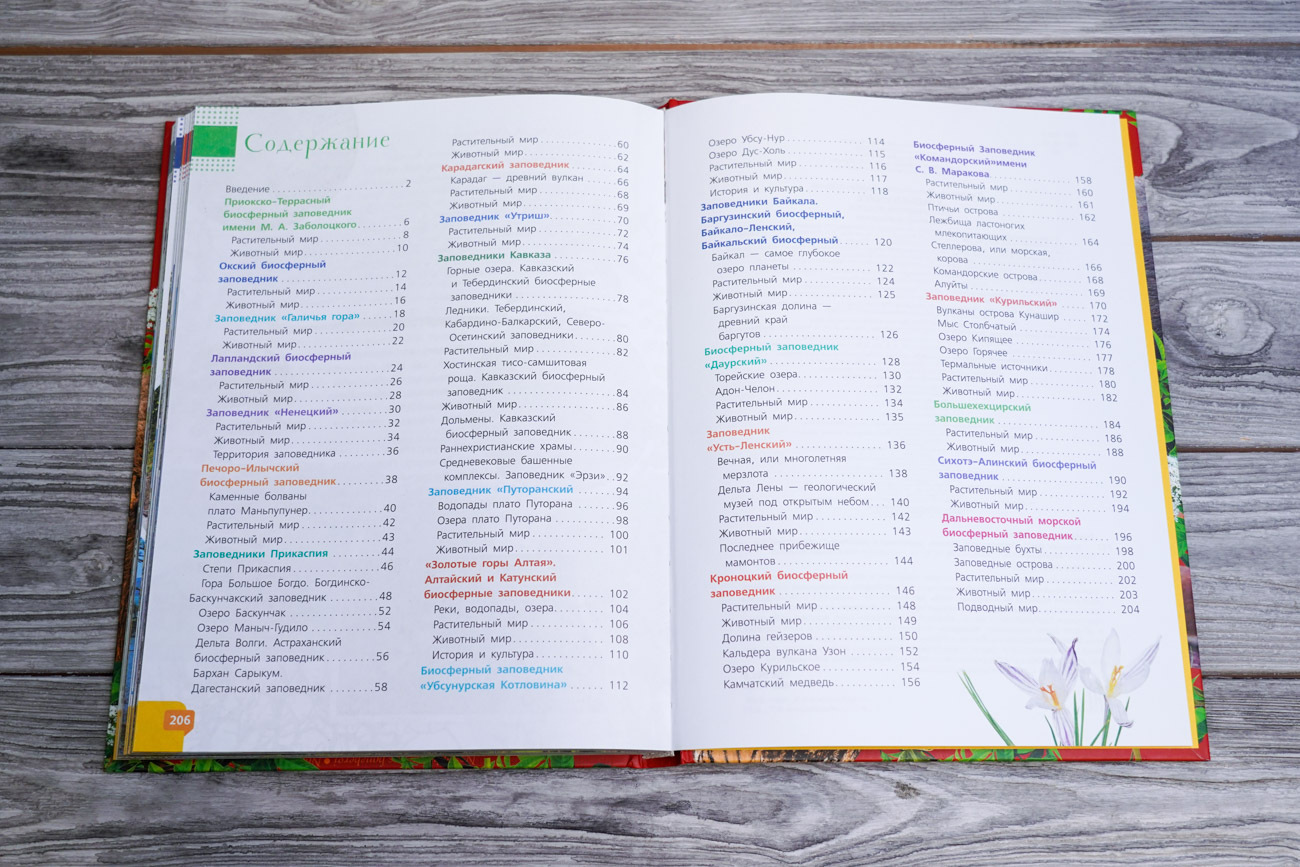 Содержание
Введение 2
Приокско-Террасный
биосферный заповедник
имени М. А. Заболоцкого 6
Растительный мир 8
Животный мир 10
Окский биосферный
заповедник 12
Растительный мир 14
Животный мир 16
Заповедник «Галичья гора» 18
Растительный мир 20
Животный мир 22
Лапландский биосферный
заповедник 24
Растительный мир 26
Животный мир 28
Заповедник «Ненецкий» 30
Растительный мир 32
Животный мир 34
Территория заповедника 36
Печоро-Илычский
биосферный заповедник 38
Каменные болваны
плато Маньпупунер 40
Растительный мир 42
Животный мир 43
Заповедники Прикаспия 44
Степи Прикаспия 46
Гора Большое Богдо. Богдинско-
Баскунчакский заповедник 48
Озеро Баскунчак 52
Озеро Маныч-Гудило 54
Дельта Волги. Астраханский
биосферный заповедник 56
Бархан Сарыкум.
Дагестанский заповедник 58
206
Растительный мир 60
Животный мир 62
Карадагский заповедник 64
Карадаг — древний вулкан 66
Растительный мир 68
Животный мир 69
Заповедник «Утриш» 70
Растительный мир 72
Животный мир 74
Заповедники Кавказа 76
Горные озера. Кавказский
и Тебердинский биосферные
заповедники 78
Ледники. Тебердинский,
Кабардино-Балкарский, Северо-
Осетинский заповедники 80
Растительный мир 82
Хостинская тисо-самшитовая
роща. Кавказский биосферный
заповедник 84
Животный мир 86
Дольмены. Кавказский
биосферный заповедник 88
Раннехристианские храмы 90
Средневековые башенные
комплексы. Заповедник «Эрзи» 92
Заповедник «Путоранский 94
Водопады плато Путорана 96
Озера плато Путорана 98
Растительный мир 100
Животный мир 101
«Золотые горы Алтая».
Алтайский и Катунский
биосферные заповедники 102
Реки, водопады, озера 104
Растительный мир 106
Животный мир 108
История и культура 110
Биосферный заповедник
«Убсунурская Котловина» 112
Озеро Убсу-Нур 114
Озеро Дус-Холь 115
Растительный мир 116
Животный мир 117
История и культура 118
Заповедники Байкала.
Баргузинский биосферный,
Байкало-Ленский,
Байкальский биосферный 120
Байкал — самое глубокое
озеро планеты 122
Растительный мир 124
Животный мир 125
Баргузинская долина —
древний край
баргутов 126
Биосферный заповедник
«Даурский» 128
Торейские озера 130
Адон-Челон 132
Растительный мир 134
Животный мир 135
Заповедник
«Усть-Ленский» 136
Вечная, или многолетняя
мерзлота 138
Дельта Лены — геологический
музей под открытым небом 140
Растительный мир 142
Животный мир 143
Последнее прибежище
мамонтов 144
Кроноцкий биосферный
заповедник 146
Растительный мир 148
Животный мир 149
Долина гейзеров 150
Кальдера вулкана Узон 152
Озеро Курильское 154
Камчатский медведь 156
Биосферный Заповедник
«Командорский»имени
С. В. Маракова 158
Растительный мир 160
Животный мир 161
Птичьи острова 162
Лежбища ластоногих
млекопитающих 164
Стеллерова, или морская,
корова 166
Командорские острова 168
Алуйты 169
Заповедник «Курильский» 170
Вулканы острова Кунашир 172
Мыс Столбчатый 174
Озеро Кипящее 176
Озеро Горячее 177
Термальные источники 178
Растительный мир 180
Животный мир 182
Большехехцирский
заповедник 184
Растительный мир 186
Животный мир 188
Сихотэ-Алинский биосферный
заповедник 190
Растительный мир 192
Животный мир 194
Дальневосточный морской
биосферный заповедник 196
Заповедные бухты 198
Заповедные острова 200
Растительный мир 202
Животный мир 203
Подводный мир 204